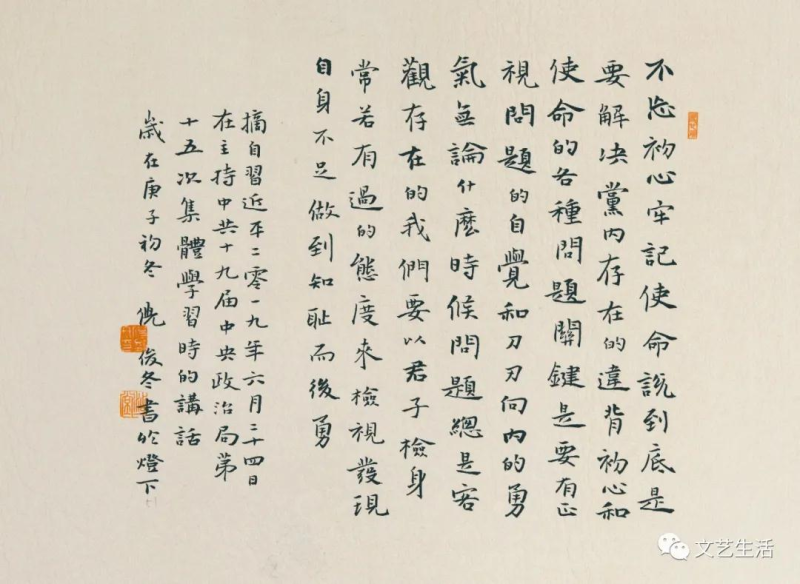 不忘初心牢記使命說到底是
要解决黨内存在的違背初心和
使命的各種問題關鍵是要有正
視問題的自覺和刀刃向内的勇
氣無論什麼時候問題總是客
觀存在的我們要以君子檢身
常若有過的態度來檢視發現
自身不足做到知耻而後勇
摘自習近平二零一九年六月二十四日
在主持中共十九届中央政治局第
十五次集體學習時的講話
歲在庚子初冬 俊冬書於燈下
文艺生活